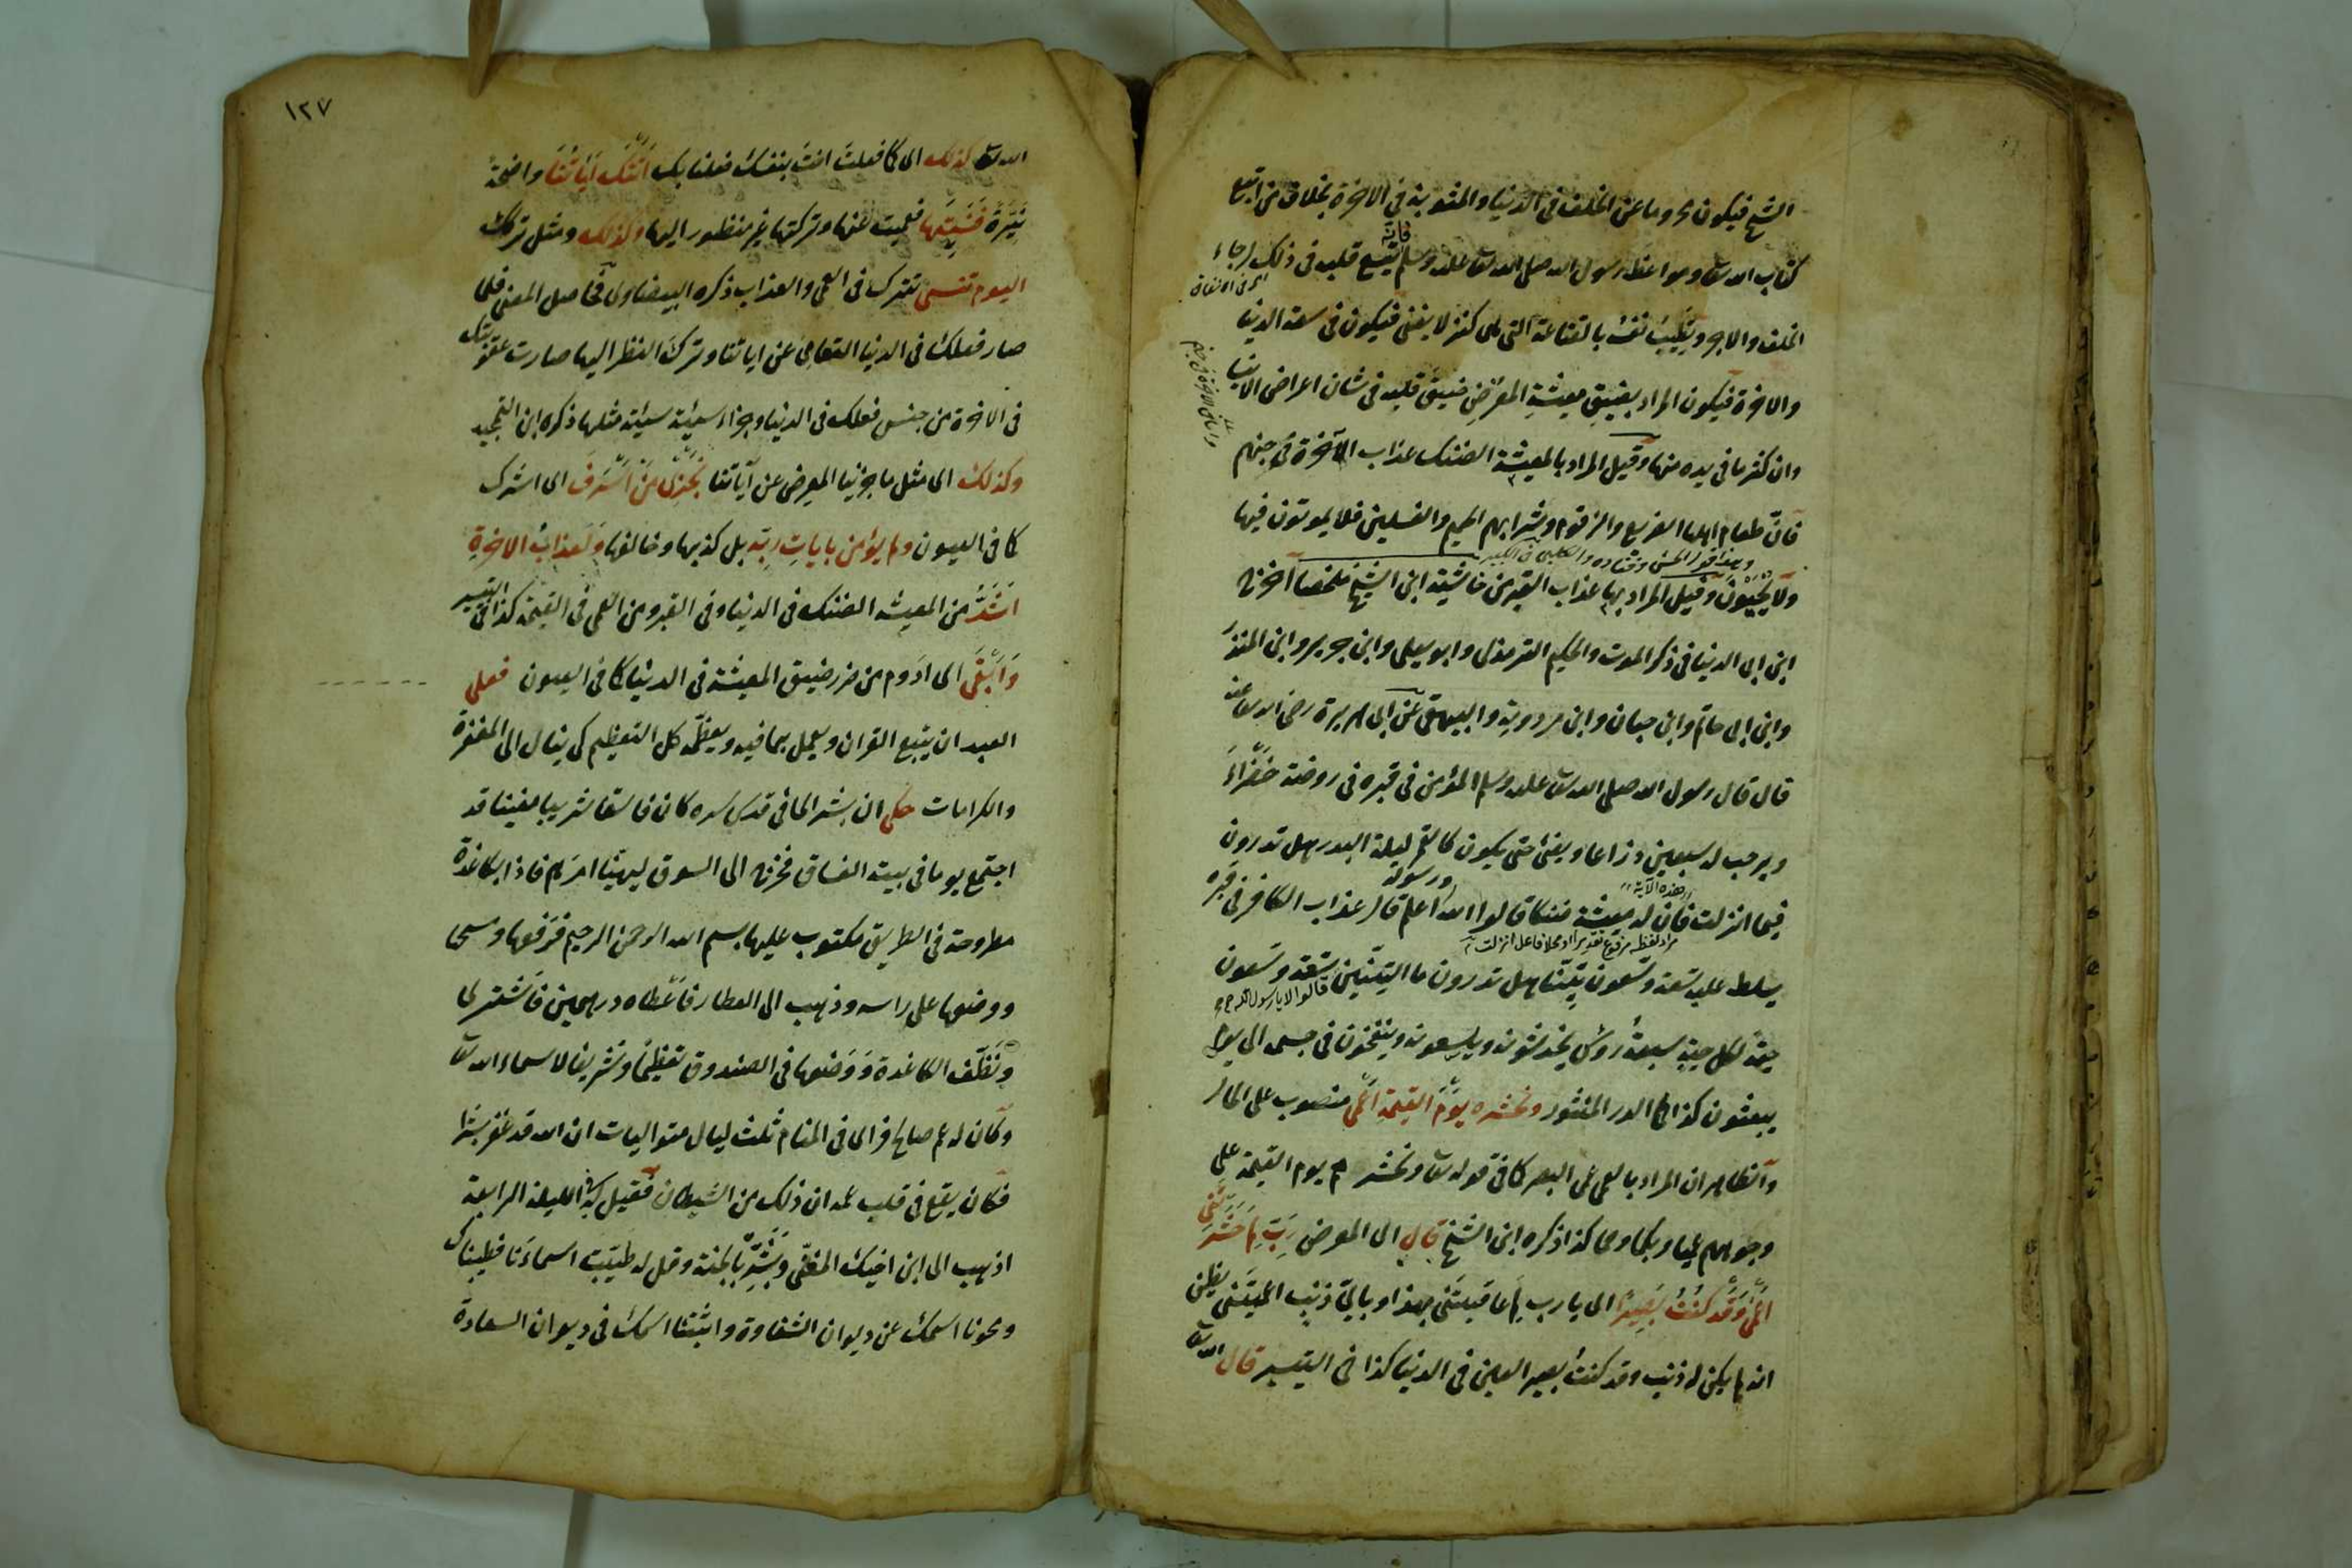 الشح فيكون محروما عن الخلف فى الدنيا والمثوبة فى الاخرة بخلاف من اتبع
كتاب الله تعا ومواعظ رسول الله صلى الله تعا عليه وسلم فانه يتسع قلبه فى ذلك لرجاء
الخلف والاجر ويطيب نفسه بالقناعة التى هى كنز لا يفنى فيكون فى سعة الدنيا
والاخرة فيكون المراد بضيق معيشة المعرض ضيق قلبه فى شان اعراض الدنيا
وان كثر ما فى يده منها وقيل المراد بالمعيشة الضنك عذاب الآخرة فى جهنم
فان طعام اهلها الضريع والزقوم وشرابهم الحميم والغسلين فلا يموتون فيها
وهذا قول الحسن وقتاده والكلبى فى الكبير
ولا يحيون وقيل المراد بها عذاب القبر من حاشية ابن الشيخ ملخصا اخرج
ابن ابى الدنيا فى ذكر الموت والحكيم الترمذى وابو يعلى وابن جرير وابن المنذر
وابن ابى حاتم وابن حبان وابن مردويه والبيهقى عن ابى هريرة رضى الله تعا عنه
قال قال رسول الله صلى الله تعا عليه وسلم المؤمن فى قبره فى روضة خضراء
ويرحب له سبعين ذراعا ويضئ حتى يكون كالقمر ليلة البدر هل تدرون
فيما انزلت هذه الآية فان له معيشة ضنكا قالوا الله ورسوله اعلم قال عذاب الكافر فى قبره
مراد لفظه مرفوع تقديرا او محلا فاعل انزلت
يسلط عليه تسعة وتسعون تنينا هل تدرون ما التنين تسعة وتسعون
قالوا لا يا رسول الله
حية لكل حية سبعة رؤس يخدشونه ويلسعونه وينفخون فى جسمه الى يوم
يبعثون كذا فى الدر المنثور ونحشره يوم القيمة اعمى منصوب على الحال
والظاهر ان المراد بالعمى عمى البصر كما فى قوله تعا ونحشرهم يوم القيمة على
وجوههم عميا وبكما وصما كذا ذكره ابن الشيخ قال اى المعرض رب لم حشرتنى
اعمى وقد كنت بصيرا اى يارب لم عاقبتنى بهذا وباى ذنب اعميتنى يظن
انه لم يكن له ذنب وقد كنت بصير العين فى الدنيا كذا فى التيسير قال الله تعا
١٢٧
الله تعا كذلك اى كما فعلت انت بنفسك فعلنا بك اتتك آياتنا واضحة
نيرة فنسيتها فعميت عنها وتركتها غير منظور اليها وكذلك ومثل تركك
اليوم تنسى تترك فى العمى والعذاب ذكره البيضاوى فحاصل المعنى فلما
صار فعلك فى الدنيا التعامى عن اياتنا وترك النظر اليها صارت عقوبتك
فى الاخرة من جنس فعلك فى الدنيا وجزاء سيئة سيئة مثلها ذكره ابن التمجيد
وكذلك اى مثل ما جزينا المعرض عن آياتنا نجزى من اسرف اى اشرك
كما فى العيون ولم يؤمن بايات ربه بل كذبها وخالفها ولعذاب الاخرة
اشد من المعيشة الضنك فى الدنيا وفى القبر ومن العمى فى القيمة كذا فى التيسير
وابقى اى ادوم من ضرر ضيق المعيشة فى الدنيا كما فى العيون فعلى
العبد ان يتبع القران ويعمل بما فيه ويعظمه كل التعظيم كى ينال الى المغفرة
والكرامات حكى ان بشر الحافى قدس سره كان فاسقا شريبا مغنيا قد
اجتمع يوما فى بيته الفساق فخرج الى السوق ليهيئ امرهم فاذا بكاغدة
مطروحة فى الطريق مكتوب عليها بسم الله الرحمن الرحيم فرفعها ومسحها
ووضعها على راسه وذهب الى العطار فاعطاه درهمين فاشترى
ونظف الكاغدة ووضعها فى الصندوق تعظيما وتشريفا لاسماء الله تعا
وكان له عم صالح فراى فى المنام ثلث ليال متواليات ان الله قد غفر بشرا
فكان يقع فى قلب عمه ان ذلك من الشيطان فقيل له الليلة الرابعة
اذهب الى ابن اخيك المغنى وبشره بالجنة وقل له طيبت اسماءنا فطيبناك
ومحونا اسمك عن ديوان الشقاوة واثبتنا اسمك فى ديوان السعادة